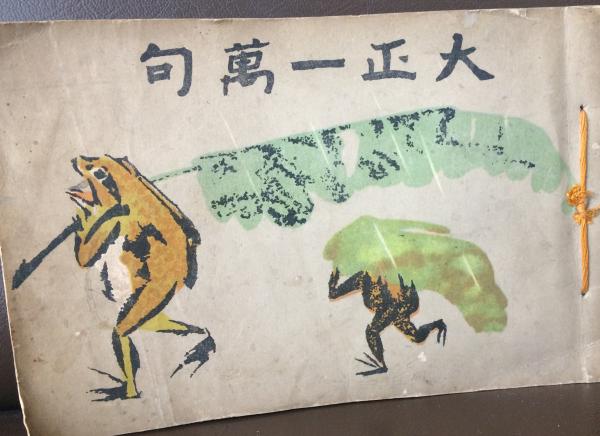 大正一萬句